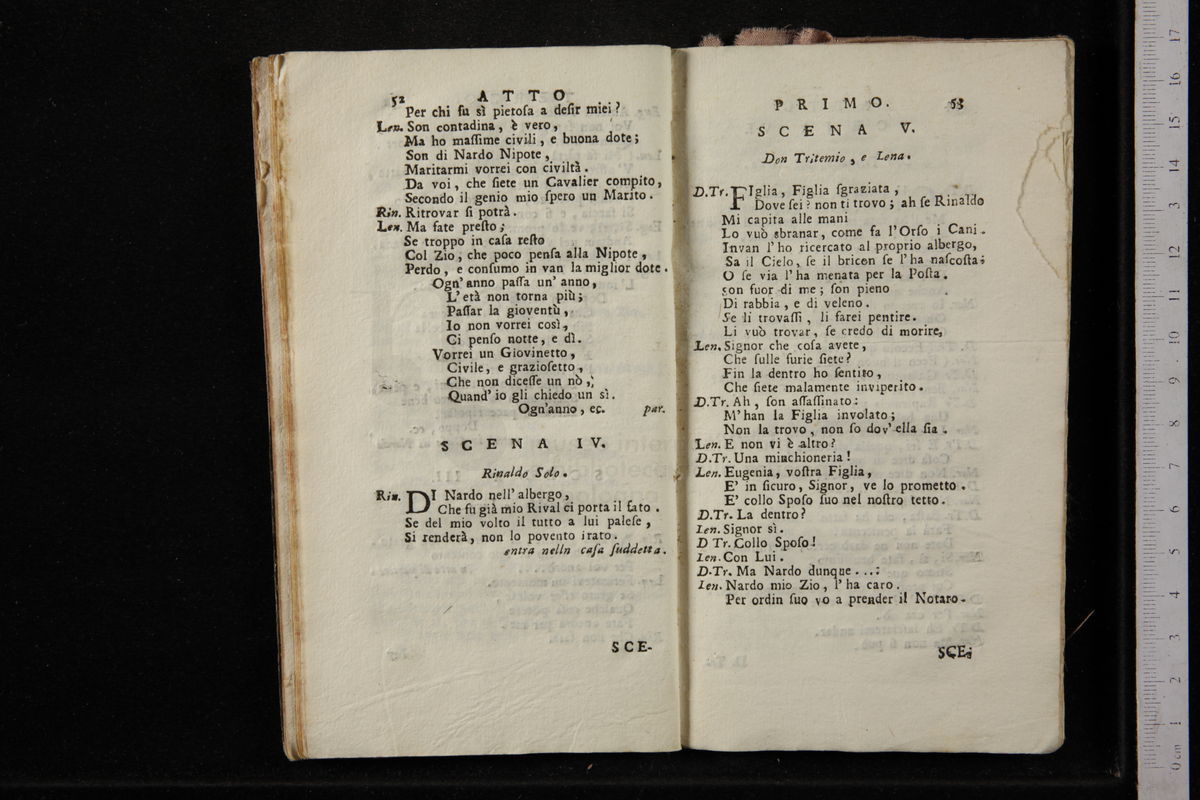 52 ATTO
Per chi fu sì pietosa a desir miei?
Len. Son contadina, è vero,
Ma ho massime civili, e buona dote;
Son di Nardo Nipote,
Maritarmi vorrei con civiltà.
Da voi, che siete un Cavalier compito,
Secondo il genio mio spero un Marito.
Rin. Ritrovar si potrà.
Len. Ma fate presto;
Se troppo in casa resto
Col Zio, che poco pensa alla Nipote,
Perdo, e consumo in van la miglior dote.
Ogn' anno passa un' anno,
L' età non torna più;
Passar la gioventù,
Io non vorrei così,
Ci penso notte, e dì.
Vorrei un Giovinetto,
Civile, e graziosetto,
Che non dicesse un nò,
Quand' io gli chiedo un sì.
Ogn'anno, ec. par.
SCENA IV.
Rinaldo Solo.
Rin. DI Nardo nell' albergo,
Che fu già mio Rival ci porta il fato.
Se del mio volto il tutto a lui palese,
Si renderà, non lo povento irato.
entra nelln casa suddetta.
SCE-
PRIMO. 53
SCENA V.
Don Tritemio, e Lena.
D.Tr. FIglia, Figlia sgraziata,
Dove sei? non ti trovo; ah se Rinaldo
Mi capita alle mani
Lo vuò sbranar, come fa l'Orso i Cani.
Invan l' ho ricercato al proprio albergo,
Sa il Cielo, se il bricon se l' ha nascosta;
O se via l' ha menata per la Posta.
Son fuor di me; son pieno
Di rabbia, e di veleno.
Se li trovassi, li farei pentire.
Li vuò trovar, se credo di morire,
Len. Signor che cosa avete,
Che sulle furie siete?
Fin la dentro ho sentito,
Che siete malamente inviperito.
D.Tr. Ah, son assassinato:
M' han la Figlia involato;
Non la trovo, non so dov' ella sia.
Len. E non vi è altro?
D.Tr. Una minchioneria!
Len. Eugenia, vostra Figlia,
E' in sicuro, Signor, ve lo prometto.
E' collo Sposo suo nel nostro tetto.
D.Tr. La dentro?
Len. Signor sì.
D Tr. Collo Sposo!
Len. Con Lui.
D.Tr. Ma Nardo dunque...:
Len. Nardo mio Zio, l' ha caro.
Per ordin suo vo a prender il Notaro.
SCE-
0 cm 1 2 3 4 5 6 7 8 9 10 11 12 13 14 15 16 17